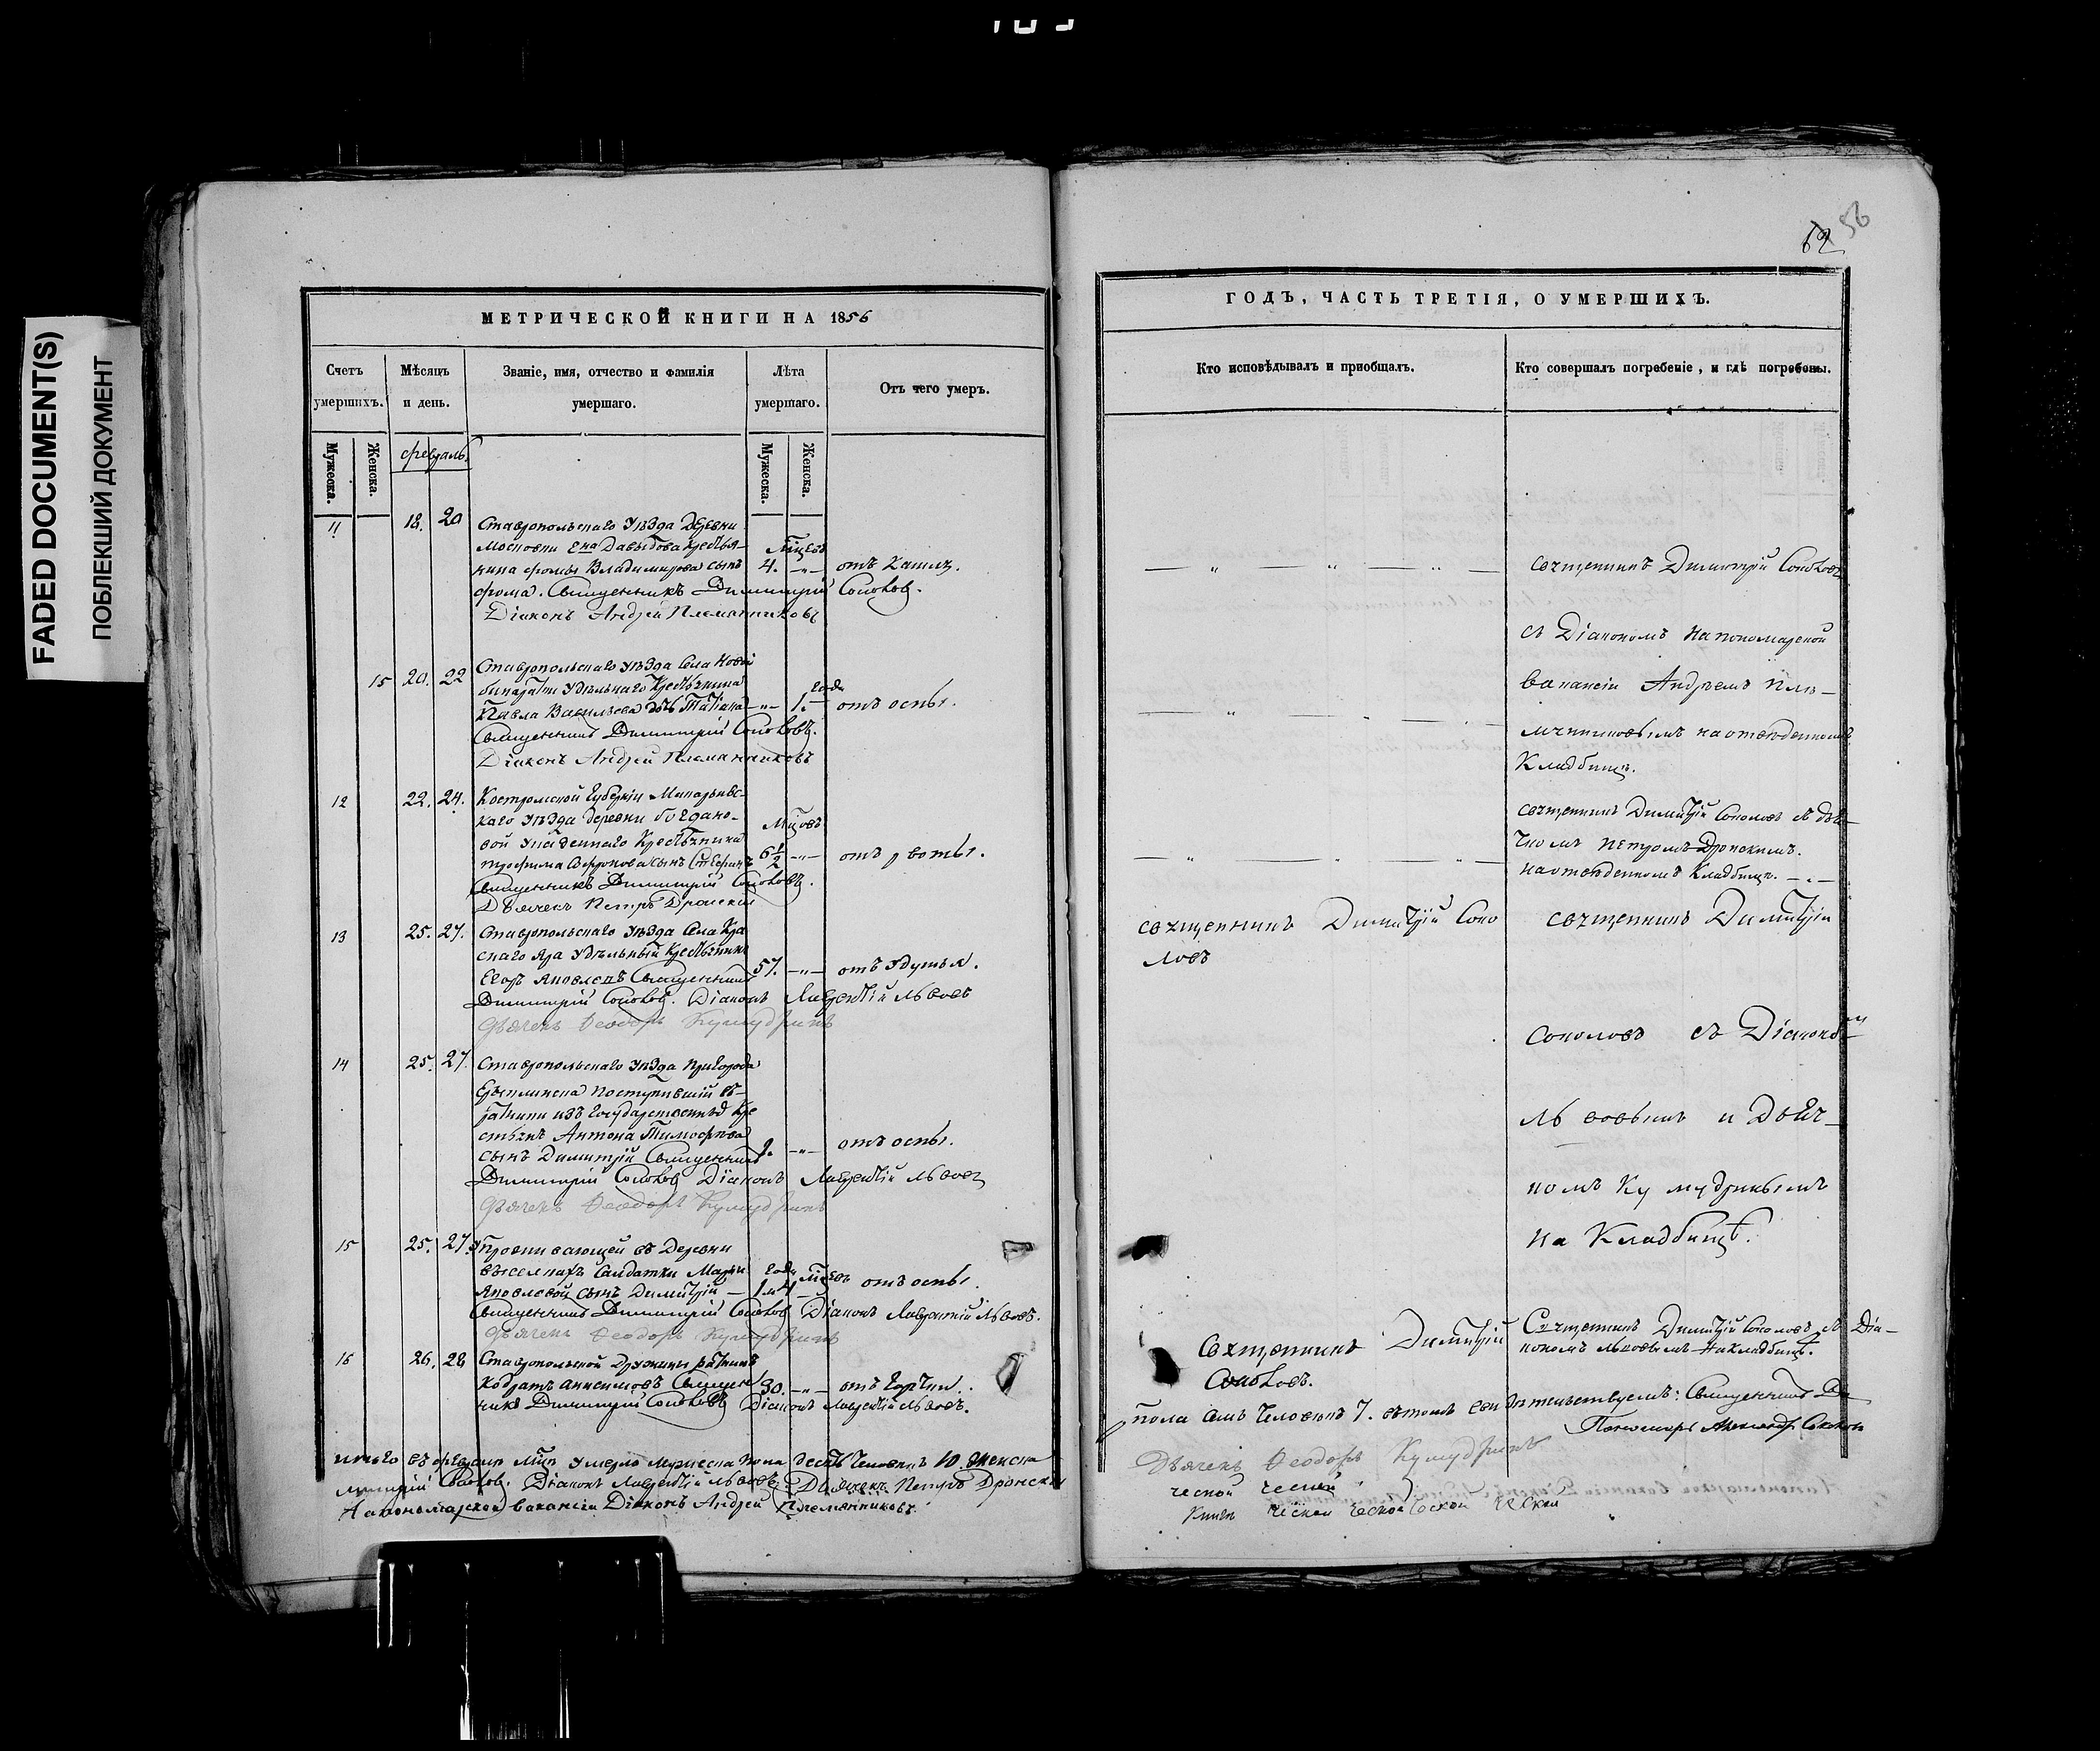 FADED DOCUMENT(S)
ПОБЛЕКШИЙ ДОКУМЕНТ
МЕТРИЧЕСКОЙ КНИГИ НА 1856
Счетъ умершихъ.
Мужеска.
Женска.
Мѣсяцъ и день.
Званіе, имя, отчество и фамилія умершаго.
Лѣта умершаго.
Мужеска.
Женска.
Отъ чего умеръ.
февраль.
11 18. 20 Ставропольскаго Уѣзда Деревни
Московки Давыдова крестья-
нина Фомы Владимирова сынъ 4. отъ кашля.
Фома. Священникъ Димитрій Соколов.
Діаконъ Андрей Племянниковъ
15 20. 22 Ставропольскаго Уѣзда Села Новой
Удѣльнаго Крестьянина
Павла Васильева дочь Татіана 1. года отъ оспы.
Священникъ Димитрій Соколовъ.
Діаконъ Андрей Племянниковъ
12 22. 24. Костромской Губерніи Макарьевс-
каго Уѣзда деревни Богдано-
вой Крестьянина Мцовъ
Трофима сынъ Стефанъ 6½ отъ рвоты.
Священникъ Димитрій Соколовъ.
Дьячекъ Петръ Дронскій
13 25. 27. Ставропольскаго Уѣзда Села Кра
снаго Яра Удѣльный Крестьянинъ
Егоръ Яковлевъ Священникъ 57. отъ удушья.
Димитрій Соколов. Діаконъ Лаврентій Львовъ
Дьячекъ Феодоръ Кумудринъ
14 25. 27. Ставропольскаго Уѣзда Пригорода
Ерыклинска поступившій въ
ратники изъ Государственныхъ Кре
стьянъ Антона Тимофѣева
сынъ Димитрій Священникъ отъ оспы.
Димитрій Соколов Діаконъ Лаврентій Львовъ
Дьячекъ Феодоръ Кумудринъ
15 25. 27. Проживающей въ Деревни
Выселкахъ Салдатки Марьи
Яковлевой сынъ Димитрій отъ оспы.
Священникъ Димитрій Соколов Діаконъ Лаврентій Львовъ.
Дьячекъ Феодоръ Кумудринъ
16 26. 28 Ставропольской дружины ратникъ
Кодратъ Анисимовъ Священ 30. отъ горячки.
никъ Димитрій Соколовъ Діаконъ Лаврентій Львовъ.
Итого въ февралѣ Мцѣ умерло мужеска пола десять человекъ 10. женска
митрій Соколов. Діаконъ Лаврентій Львовъ Дьячекъ Петръ Дронскій
На пономарской вакансіи Діаконъ Андрей Племянниковъ.
62 56
ГОДЪ, ЧАСТЬ ТРЕТІЯ, О УМЕРШИХЪ.
Кто исповѣдывалъ и приобщалъ.
Кто совершалъ погребеніе, и гдѣ погребены.
священникъ Димитрій Соколовъ
съ Діакономъ на пономарской
вакансіи Андреемъ Пле-
мянниковымъ на отведенномъ
Кладбищѣ.
священникъ Димитрій Соколовъ съ дья-
чкомъ Петромъ Дронскимъ.
на отведенномъ Кладбищѣ.
священникъ Димитрій Соко
ловъ
священникъ Димитрій
Соколовъ съ Діакономъ
Львовымъ и Дьяч-
комъ Кумудринымъ
на Кладбищѣ.
Священникъ Димитрій
Соколовъ.
Священникъ Димитрій Соколовъ съ Діа-
кономъ Львовымъ на Кладбищѣ.
пола семь человекъ 7. въ томъ свидѣтельствуемъ: Священникъ Ди
Пономарь Александр Соколов
Дьячекъ Феодоръ Кумудринъ
ческой ческой
Книги ческой ческой ческой ческой